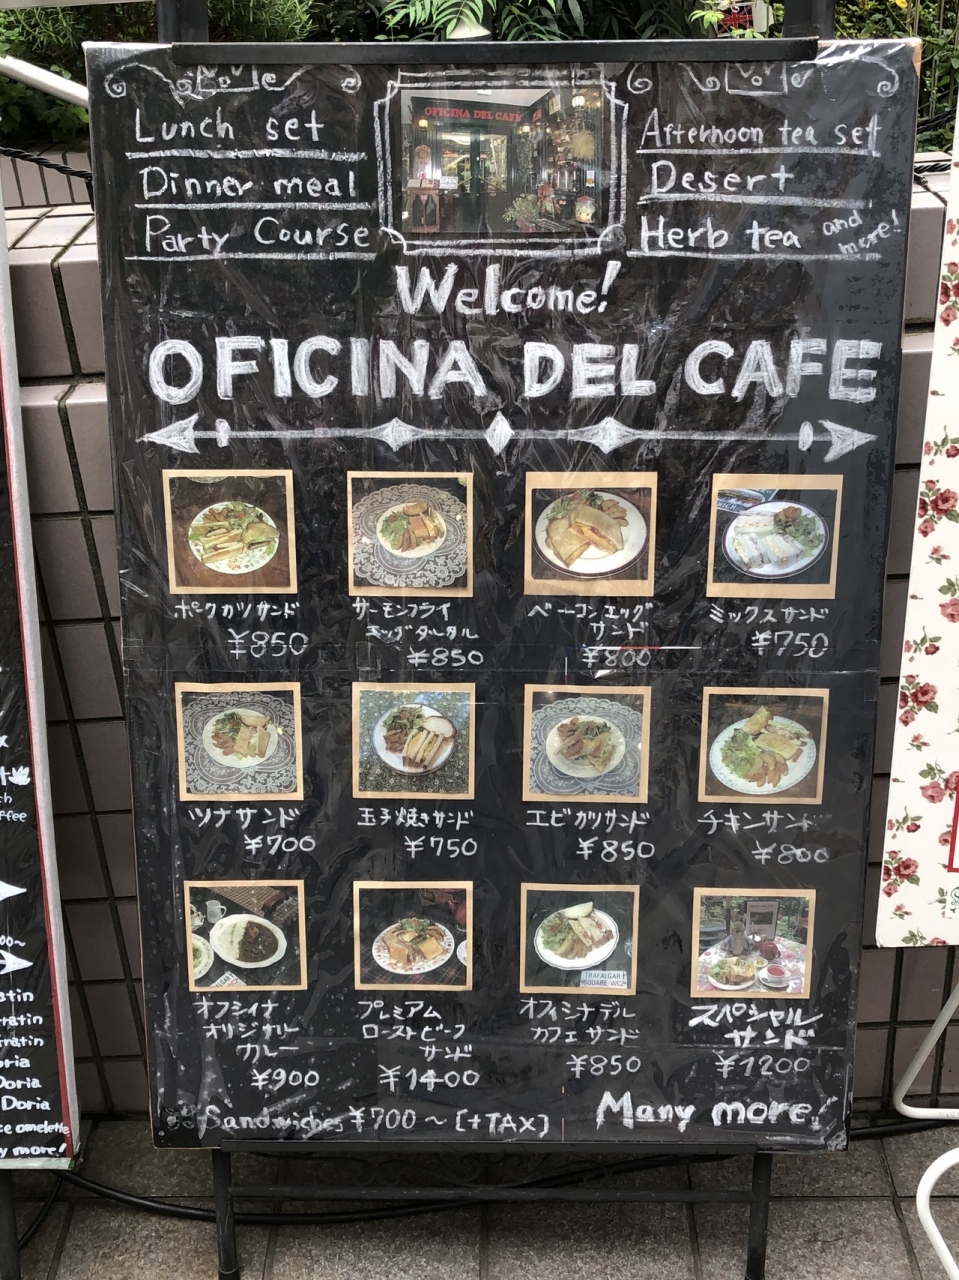 Lunch set
Dinner meal
Party Course
OFICINA DEL CAFE
OPEN
Afternoon tea set
Desert
Herb tea and more!
Welcome!
OFICINA DEL CAFE
ポークカツサンド
¥850
サーモンフライ
エッグタルタル
¥850
ベーコンエッグ
サンド
¥800
ミックスサンド
¥750
ツナサンド
¥700
玉子焼きサンド
¥750
エビカツサンド
¥850
チキンサンド
¥800
オフシイナ
オリジナルー
カレー
¥900
プレミアム
ローストビーフ
サンド
¥1400
TRAFALGAR
SQUARE WC2
オフィシナデル
カフェサンド
¥850
スペシャル
サンド
¥1200
Sandwiches ¥700~ [+TAX]
Many more!
Doria
Doria
Doria
omelette
more!